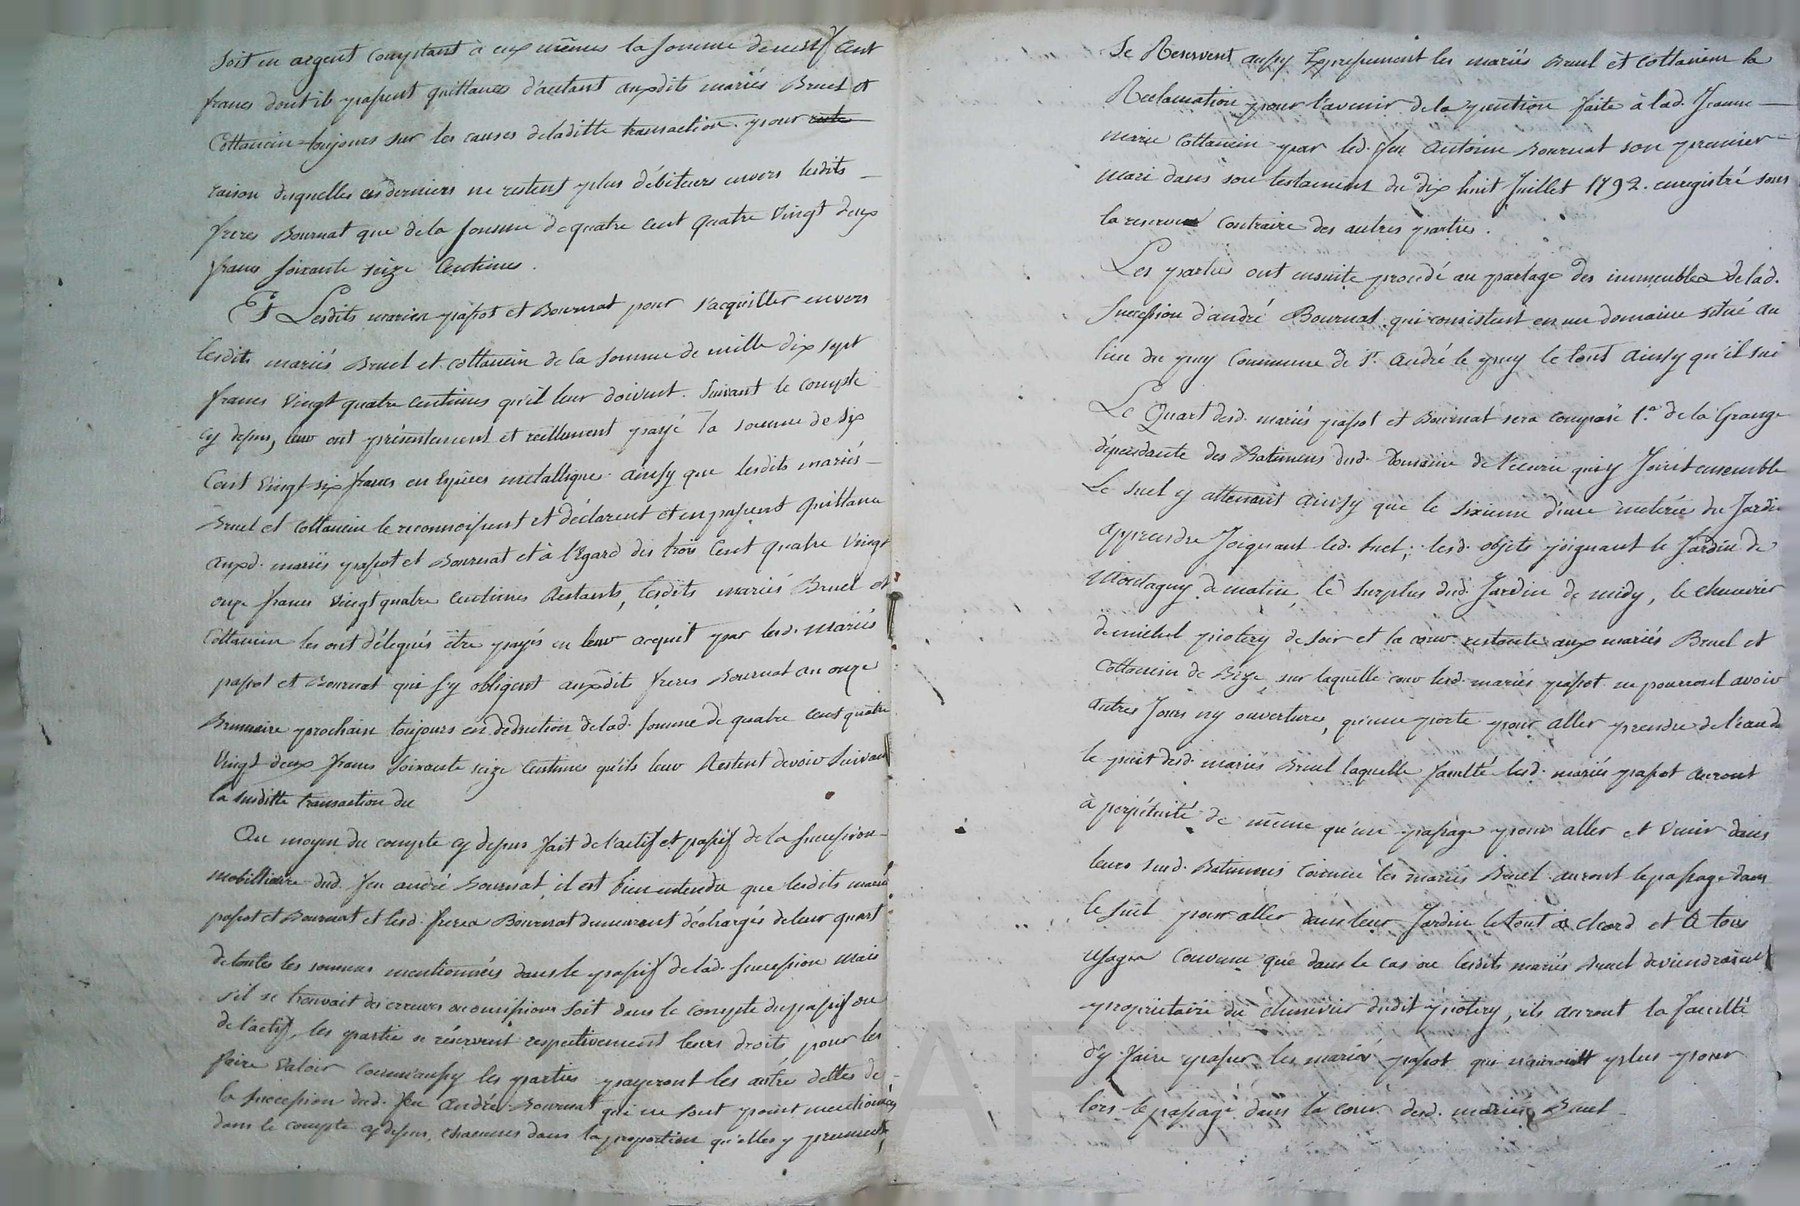 Soit en argent Comptant à eux mêmes la somme de neuf Cent
francs dont ils passent quittance d'autant auxdits mariés Bruel et
Cottancin toujours sur les causes de laditte transaction pour
raison desquelles ces derniers ne restent plus débiteurs envers lesdits
freres Bournat que de la somme de quatre Cent quatre Vingt deux
francs soixante seize Centimes.
Et Lesdits mariés passot et Bournat pour s'acquitter envers
lesdits mariés Bruel et Cottancin de la somme de mille dix sept
francs Vingt quatre Centimes qu'il leur doivent. Suivant le compte
cy dessus, leur ont présentement et réellement payé la somme de Six
Cent Vingt six francs en Espèces métallique ainsy que lesdits mariés
Bruel et Cottancin le reconnoissent et déclarent et en passent quittance
auxd. mariés passot et Bournat et à l'égard des trois Cent quatre Vingt
onze francs Vingt quatre Centimes Restants, lesdits mariés Bruel et
Cottancin les ont délégués être payés en leur acquit par lesd. mariés
passot et Bournat qui s'y obligent auxdits freres Bournat au onze
Brumaire prochain toujours en déduction de lad. somme de quatre Cent quatre
Vingt deux francs Soixante seize Centimes qu'ils leur Restent devoir Suivant
la susditte transaction du
Au moyen du compte cy dessus fait de l'actif et passif de la succession
mobilliaire dud. feu andré Bournat, il est bien entendu que lesdits mariés
passot et Bournat et lesd. freres Bournat demeurent déchargés de leur quart
de toutes les sommes mentionnées dans le passif de lad. succession mais
s'il se trouvait des erreurs ou omissions soit dans le compte du passif ou
de l'actif, les parties se réservent respectivement leurs droits pour les
faire Valoir Comm'aussy les parties payeront les autre dettes de
la succession dud. feu André Bournat qui ne sont point mentionnés
dans le compte cy dessus, chacunes dans la proportion qu'elles y prennent
Se Reservent aussy Expressement les mariés Bruel et Cottancin la
Reclamation pour l'avenir de la pention faite à lad. Jeanne
marie Cottancin par led. feu Antoine Bournat son premier
mari dans son testament du dix huit Juillet 1792. enregistré sous
la reserve Contraire des autres parties.
Les parties ont ensuite procedé au partage des immeubles de lad.
Succession d'andré Bournat qui consistent en un domaine situé au
lieu du puy Commune de St. André le puy le tout ainsy qu'il suit
Le Quart desd. mariés passot et Bournat sera composé 1.° de la Grange
dépendante des Batimens dud. Domaine de l'écurie qui y Joint ensemble
Le suel y attenant ainsy que le sixieme d'une meterée du Jardin
apprendre Joignant led. suel; lesd. objets joignant le Jardin de
Montagny de matin, le surplus dud. Jardin de midy, le chenevier
de michel piotery de soir et la cour restante aux mariés Bruel et
Cottancin de Bize, sur laquelle cour lesd. mariés passot ne pourront avoir
autres Jours ny ouvertures, qu'une porte pour aller prendre de l'eau de
le puit desd. mariés Bruel laquelle faculté lesd. mariés passot auront
à perpétuité de même qu'un passage pour aller et venir dans
leurs susd. Batimens Comme les mariés Bruel auront le passage dans
le suel pour aller dans leur Jardin le tout à chard et à tous
usages Convenu que dans le cas ou lesdits mariés Bruel deviendroient
propriétaire du chenevier dudit piotery, ils auront la faculté
d'y faire passer les mariés passot qui n'auroint plus pour
lors le passage dans la cour desd. mariés Bruel